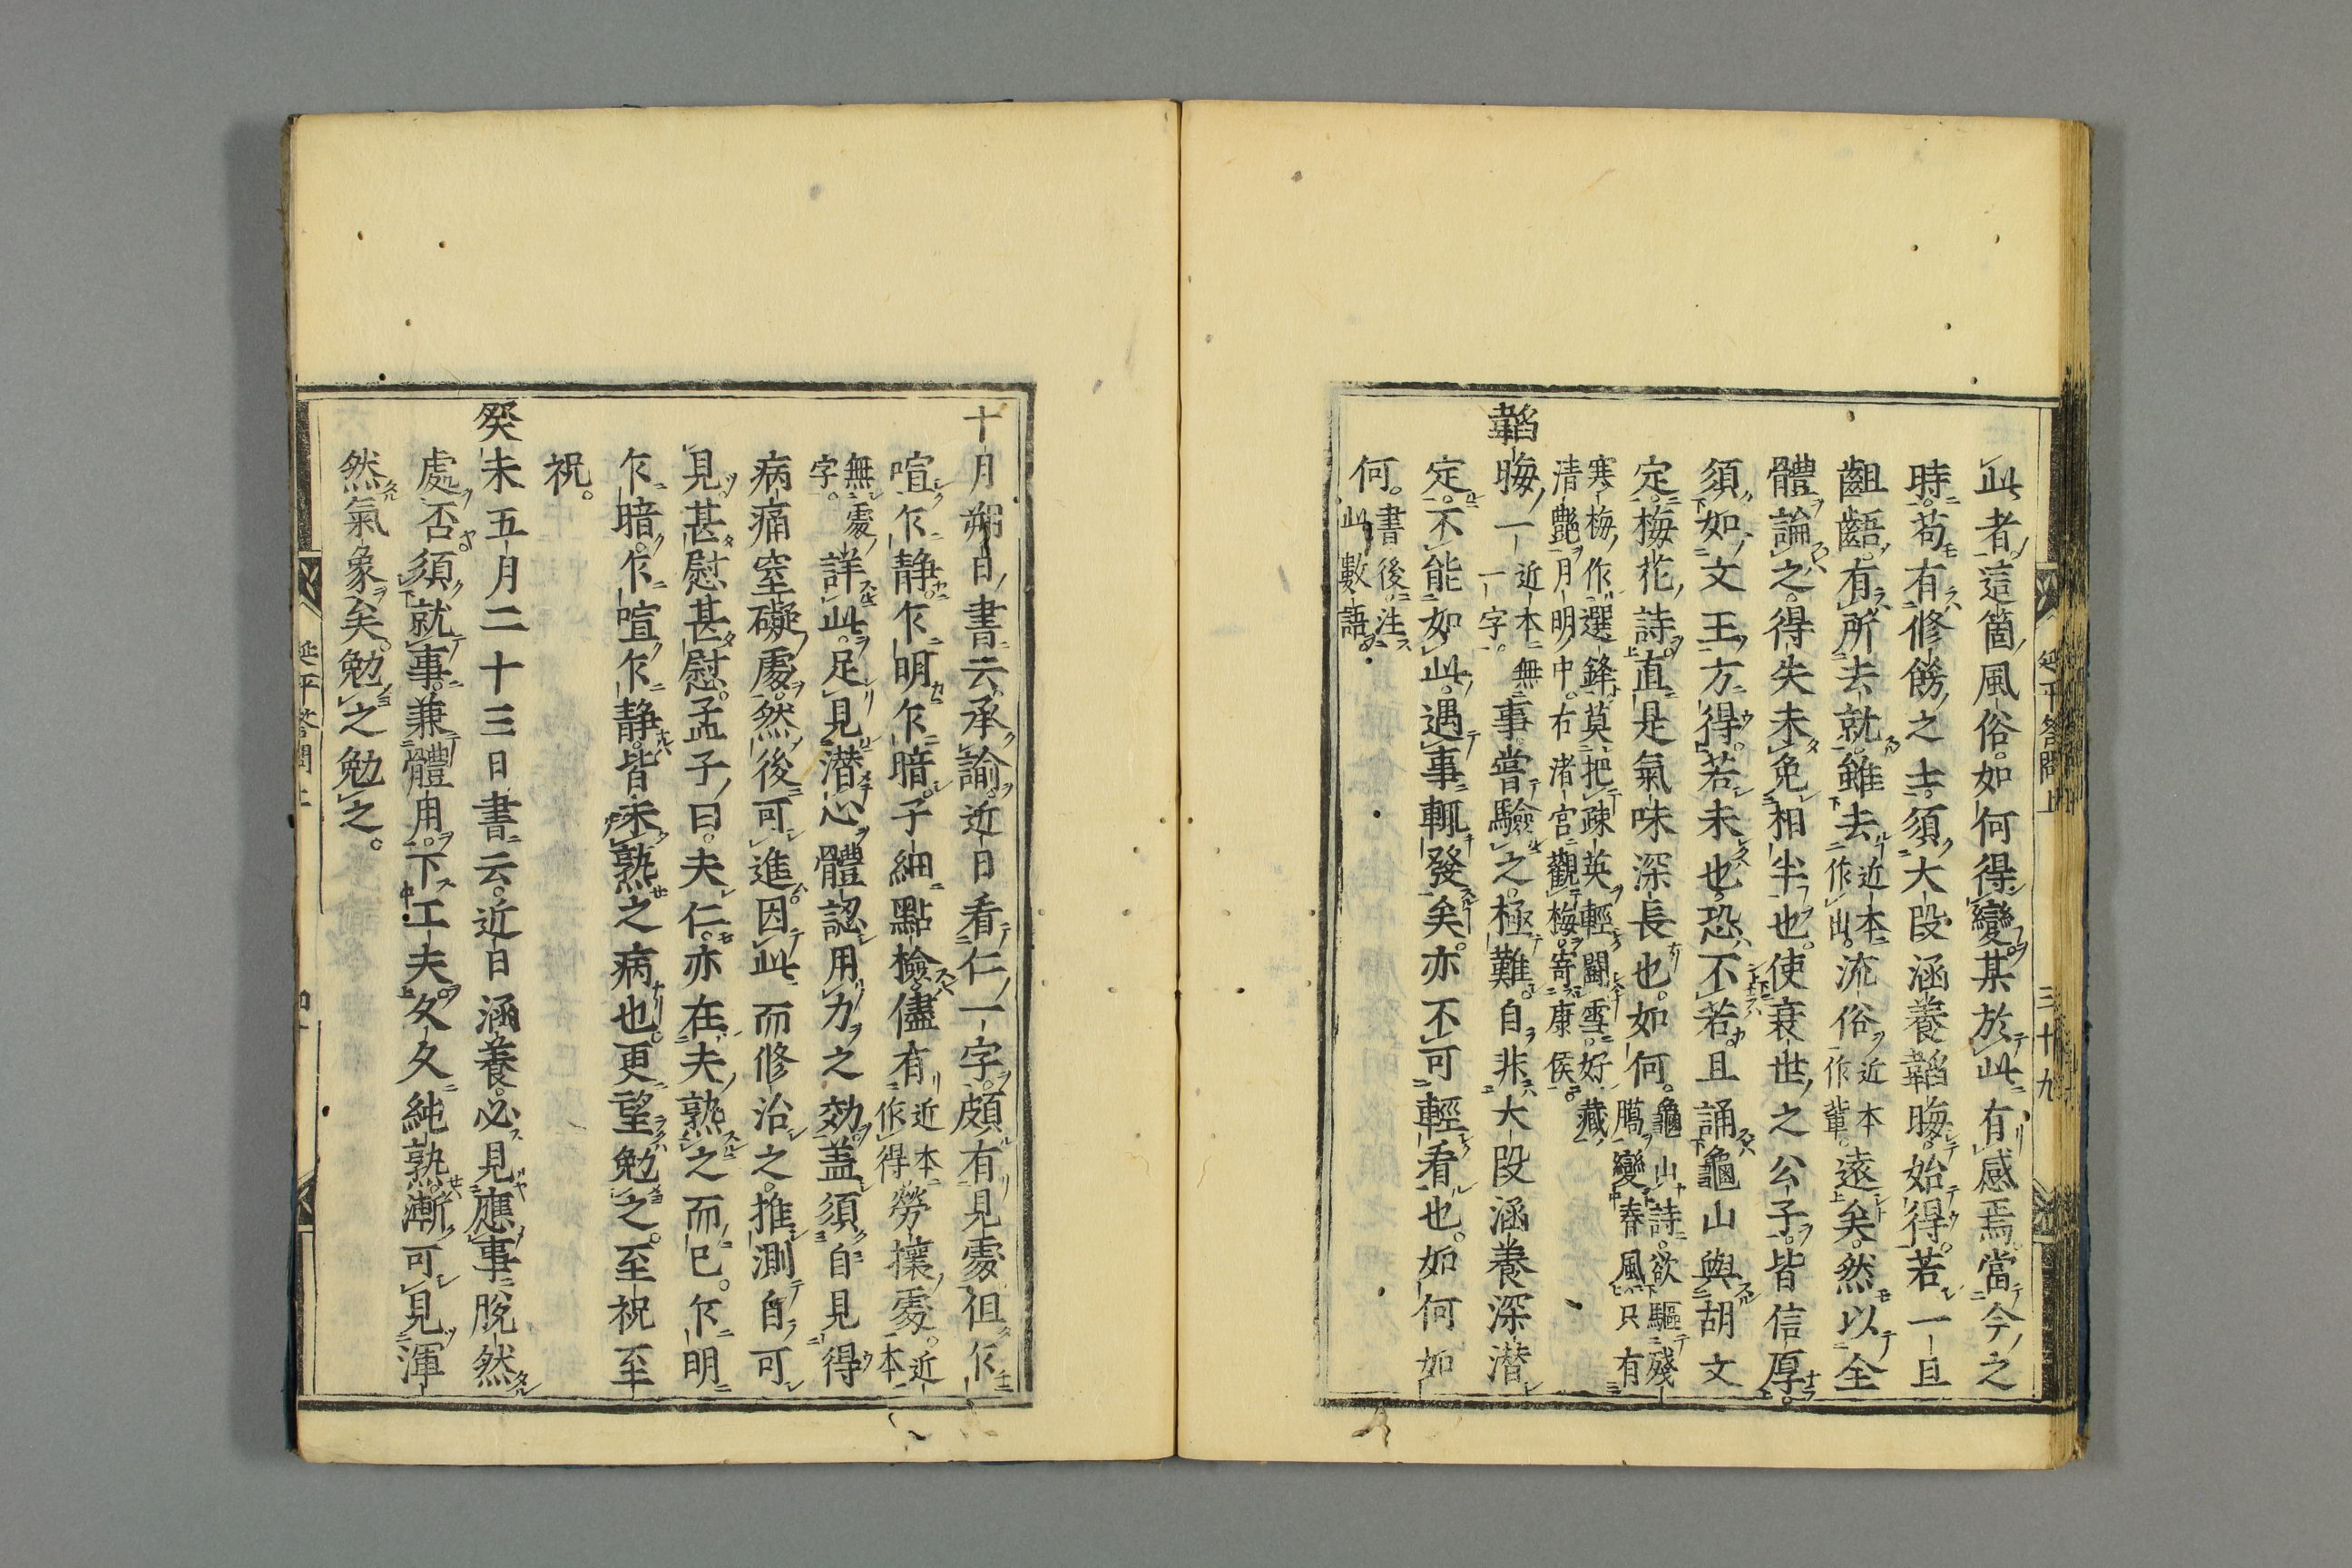 此者這箇風俗。如何得變。某於此有感焉。當今之
時。苟有修飭之士。須大段涵養韜晦。始得。若一旦
齟齬。有所去就。雖去近本作出。流俗近本作輩。遠矣。然以全
體論之。得失未免相半也。使衰世之公子。皆信厚。
須如文王方得。若未也。恐不若且誦龜山與胡文
定。梅花詩。直是氣味深長也。如何。龜山詩。欲驅殘臘變春風。只有
寒梅作選鋒。莫把疎英輕鬪雪。好藏
清艷月明中。右渚宮觀梅。寄康侯。
韜晦一近本無一字。事。嘗驗之。極難。自非大段涵養深潛
定。不能如此。遇事輒發矣。亦不可輕看也。如何如
何。書後注此數語。
延平答問上
三十九
十月朔日書云。承諭。近日看仁一字。頗有見處。但乍
喧乍静。乍明乍暗。子細點檢。儘有近本作得勞攘處。近本
無處字。詳此。足見潛心體認用力之効。蓋須自見得
病痛窒礙處。然後可進。因此而修治之。推測自可
見。甚慰甚慰。孟子曰。夫仁。亦在夫熟之而已。乍明
乍暗。乍喧乍静。皆未熟之病也。更望勉之。至祝至
祝。
癸未五月二十三日書云。近日涵養。必見應事脫然
處否。須就事。兼體用。下工夫。久久純熟。漸可見渾
然氣象矣。勉之勉之。
延平答問上